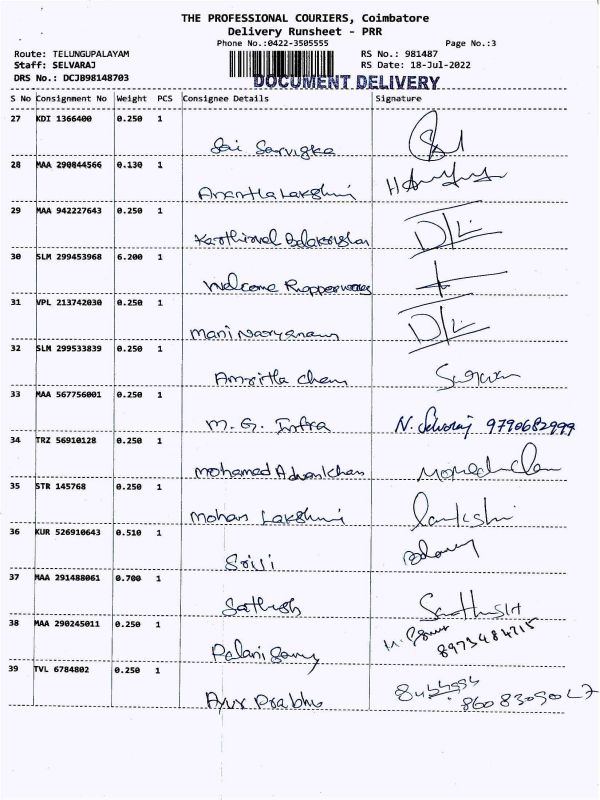 THE PROFESSIONAL COURIERS, Coimbatore
Delivery Runsheet - PRR
Phone No.:0422-3505555 Page No.:3
Route: TELUNGUPALAYAM RS No.: 981487
Staff: SELVARAJ RS Date: 18-Jul-2022
DRS No.: DCJB98148703 DOCUMENT DELIVERY
S No Consignment No Weight PCS Consignee Details Signature
27 KDI 1366400 0.250 1
Sai Sarvigka
28 MAA 290844566 0.130 1
Anantha Lakshmi
29 MAA 942227643 0.250 1
Kasthirvel D/L
30 SLM 299453968 6.200 1
Welcome
31 VPL 213742030 0.250 1
Mani Narayanan D/L
32 SLM 299533839 0.250 1
Amritha Chem
33 MAA 567756001 0.250 1
M. G. Infra N. Selvaraj 9790682999
34 TRZ 56910128 0.250 1
Mohamed
35 STR 145768 0.250 1
Mohan Lakshmi
36 KUR 526910643 0.510 1
37 MAA 291488061 0.700 1
Sathish
38 MAA 290245011 0.250 1
Palani Samy
39 TVL 6784802 0.250 1
Prabhu